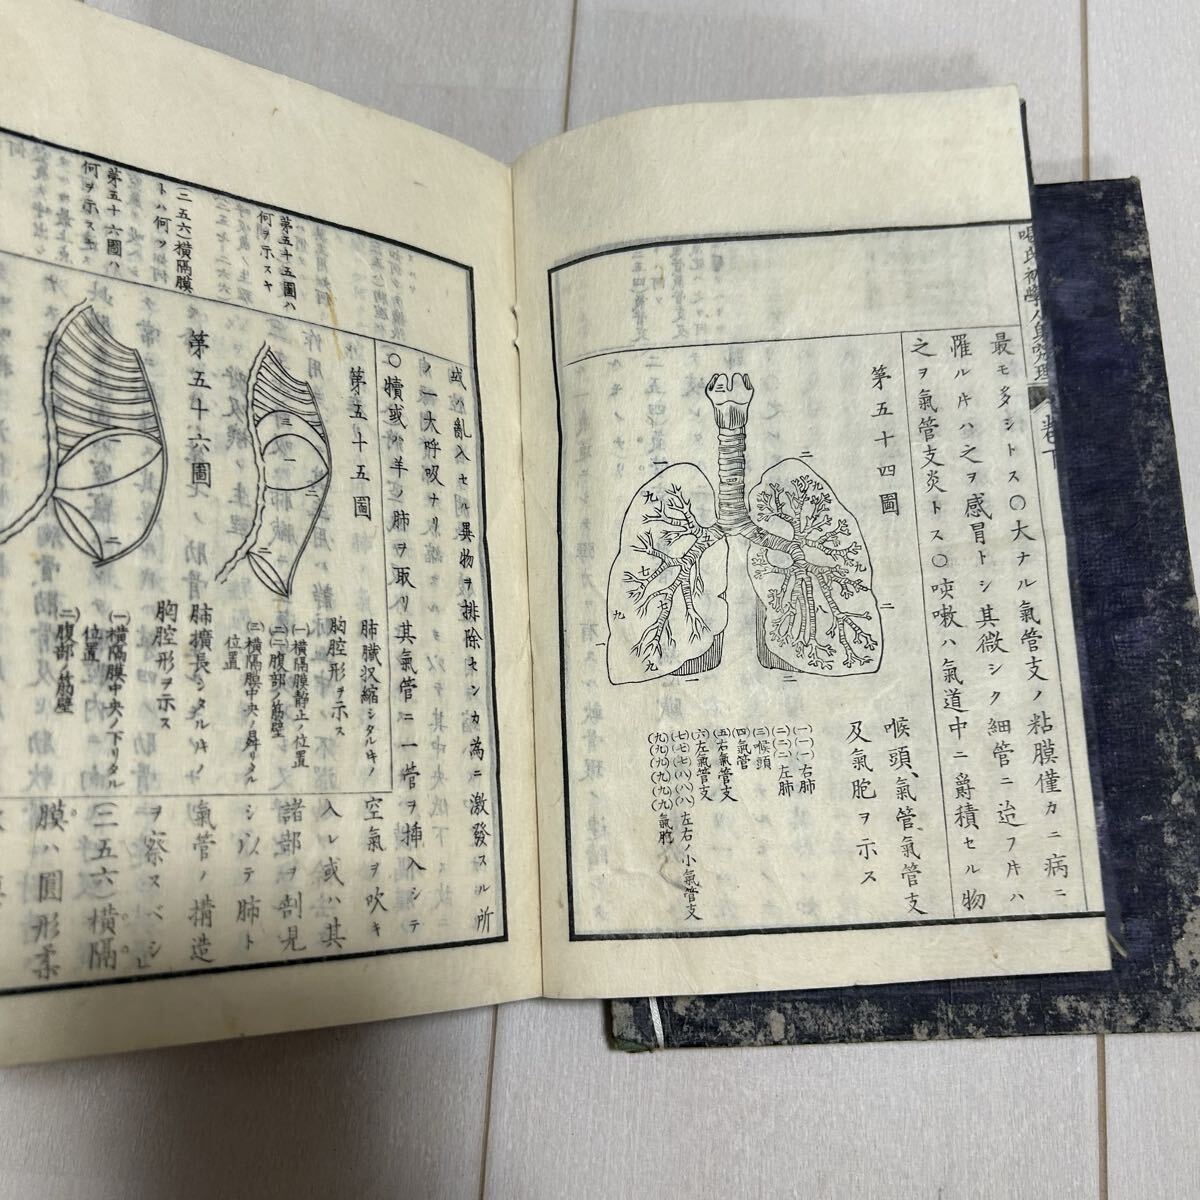 卷下
最モ多シトス〇大ナル氣管支ノ粘膜僅カニ病ニ
罹ルキハ之ヲ感冒トシ其微シク細管ニ迨フキハ
之ヲ氣管支炎トス〇咳嗽ハ氣道中ニ爵積セル物
第五十四圖
喉頭、氣管、氣管支
及氣胞ヲ示ス
(一一一)右肺
(二二二)左肺
(三)喉頭
(四)氣管
(五)右氣管支
(六)左氣管支
(七七七八八八)左右ノ小氣管支
(九九九九九九)氣胞
或ハ亂入セル異物ヲ排除センカ為ニ激發スル所
ノ一大呼吸ナリ
〇犢或ハ羊ノ肺ヲ取リ其氣管ニ一管ヲ挿入シテ
第五十五圖
肺臟収縮シタルキノ
胸腔形ヲ示ス
(一)橫隔膜靜止ノ位置
(二二)腹部ノ筋壁
(三)橫隔膜中央ノ昇リタル
位置
第五十六圖
肺擴長シタルキノ
胸腔形ヲ示ス
(一)橫隔膜中央ノ下リタル
位置
(二)腹部ノ筋壁
空氣ヲ吹キ
入レ或ハ其
諸部ヲ剖見
シ以テ肺ト
氣管ノ搆造
ヲ察スベシ
(二五六)橫隔
膜ハ圓形柔
第五十五圖ハ
何ヲ示スヤ
(二五六)橫隔膜
トハ何ソ如何
第五十六圖ハ
何ヲ示スヤ